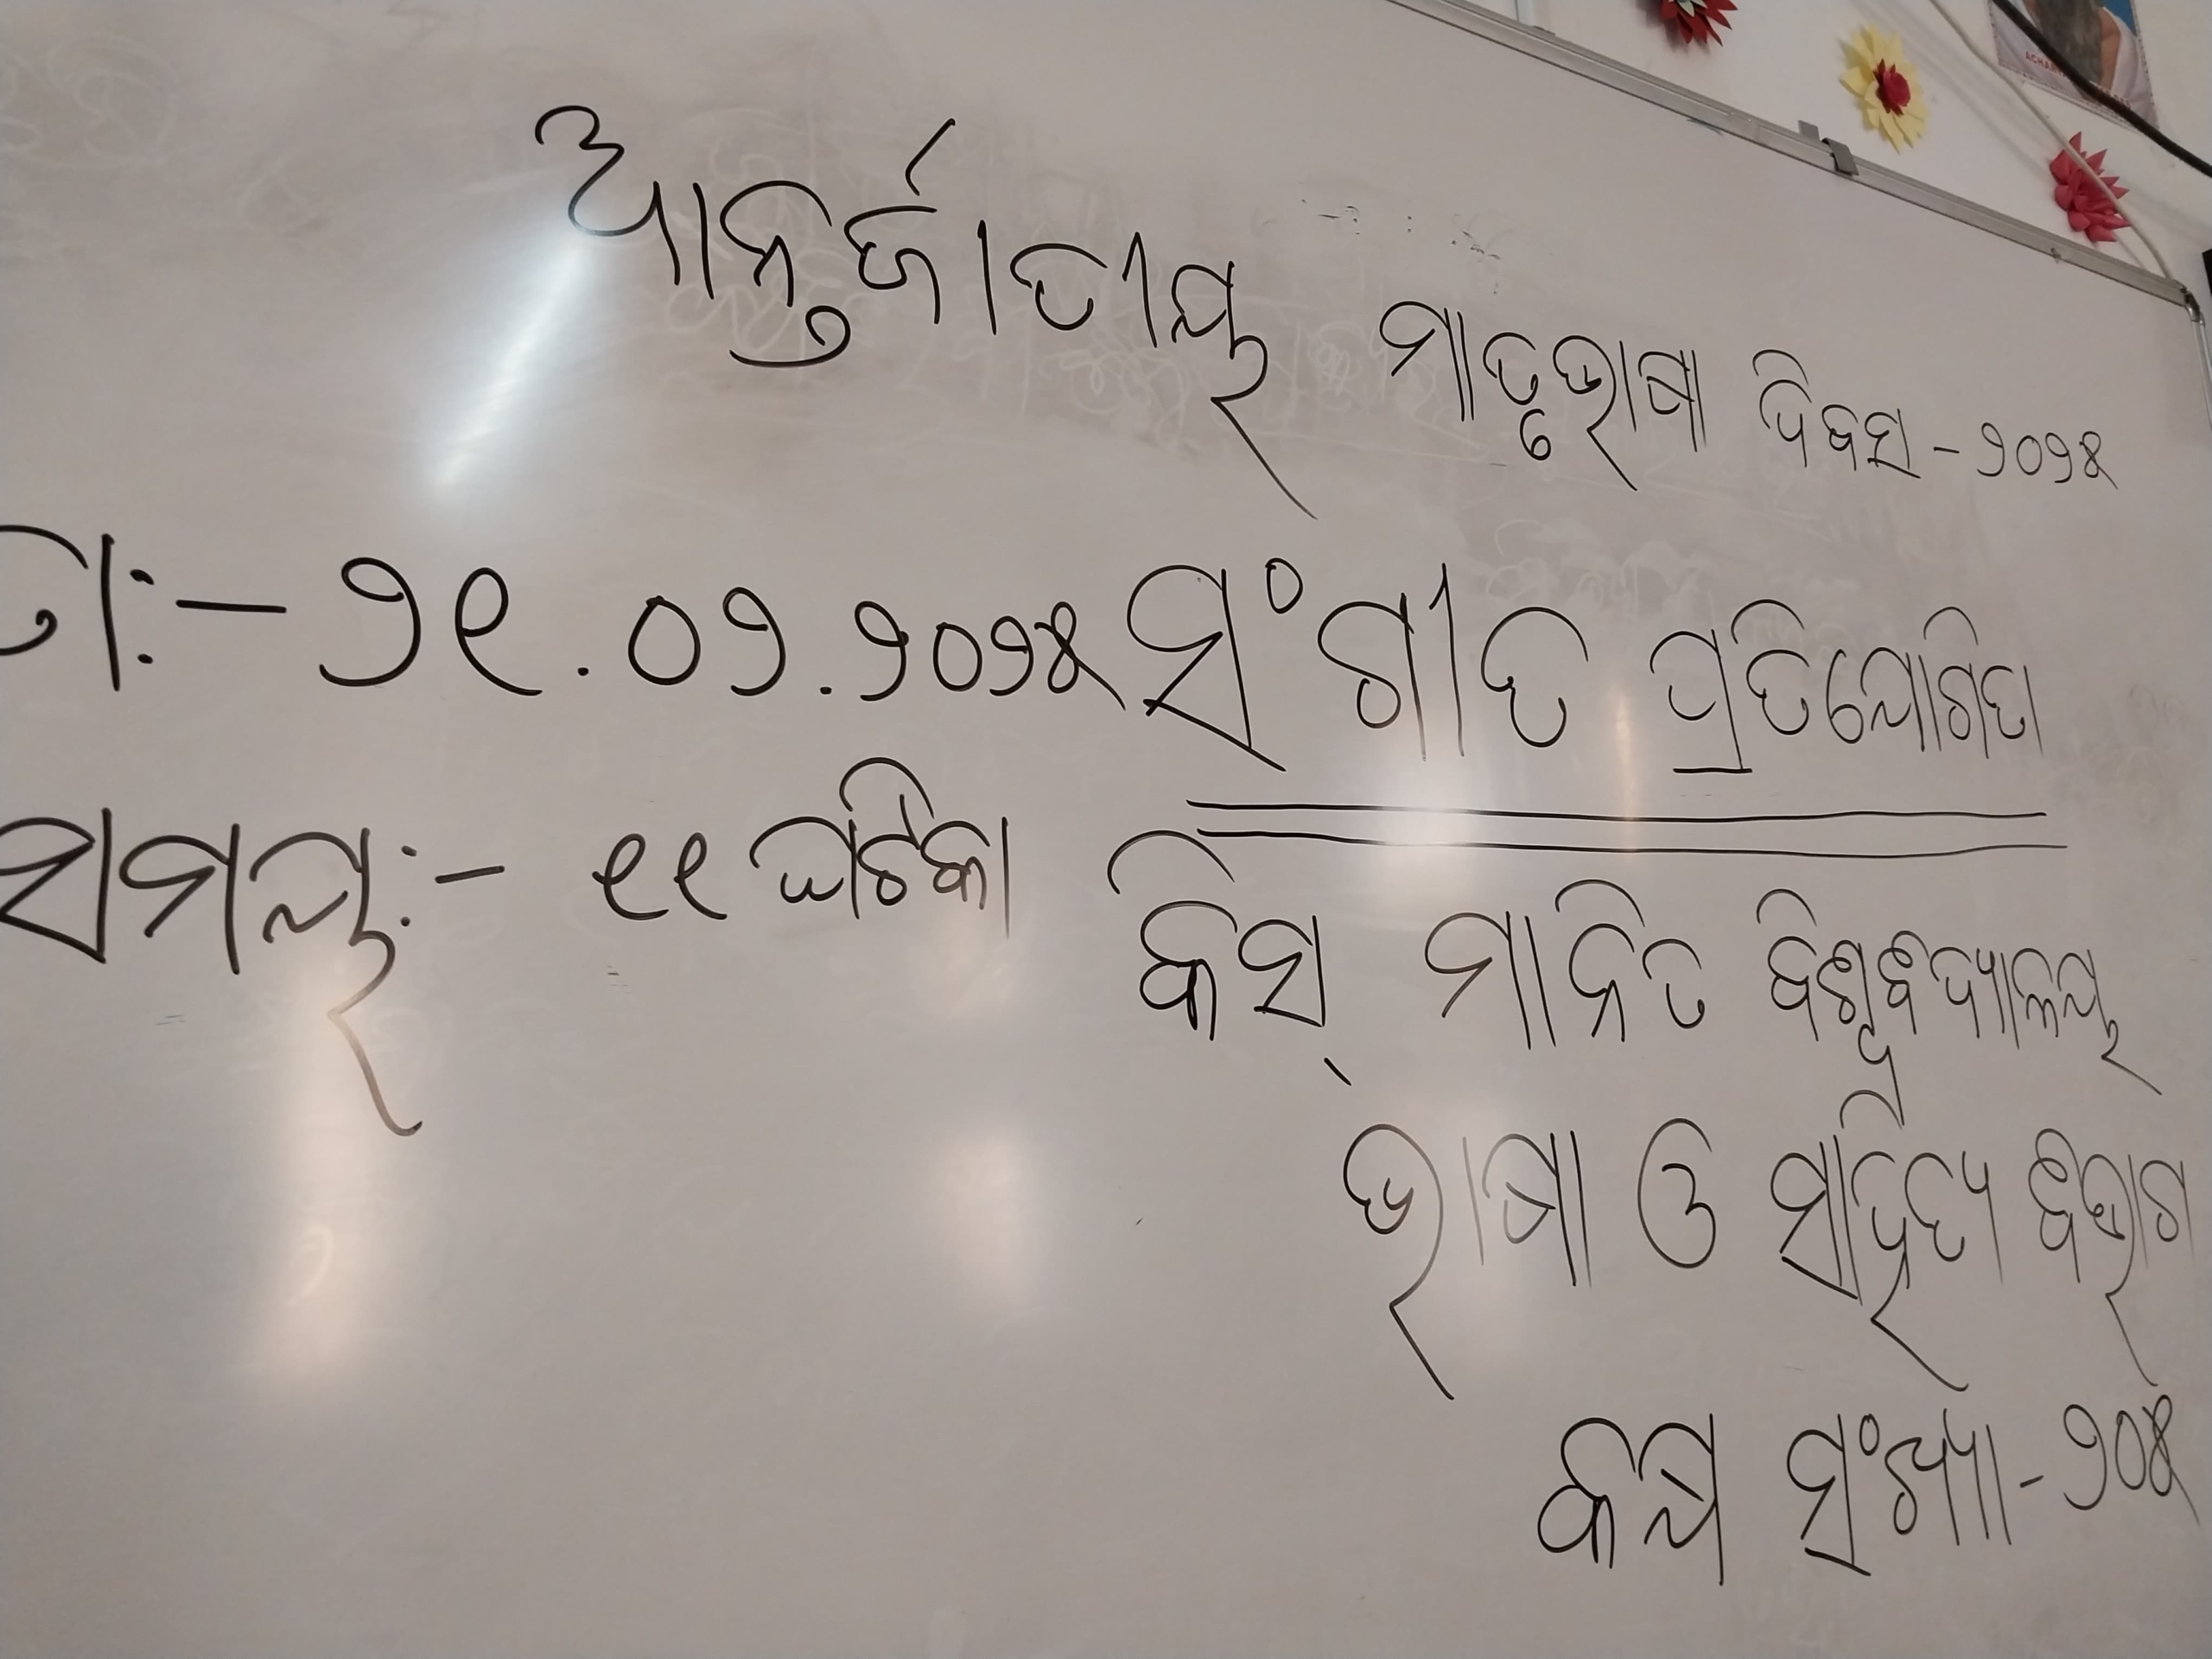 ଆନ୍ତର୍ଜାତୀୟ ମାତୃଭାଷା ଦିବସ - ୨୦୨୪
ତା:- ୨୧.୦୨.୨୦୨୪ ସଂଗୀତ ପ୍ରତିଯୋଗିତା
ସମୟ:- ୧୧ ଘଟିକା
କିସ୍ ମାନିତ ବିଶ୍ୱବିଦ୍ୟାଳୟ
ଭାଷା ଓ ସାହିତ୍ୟ ବିଭାଗ
କକ୍ଷ ସଂଖ୍ୟା - ୨୦୪